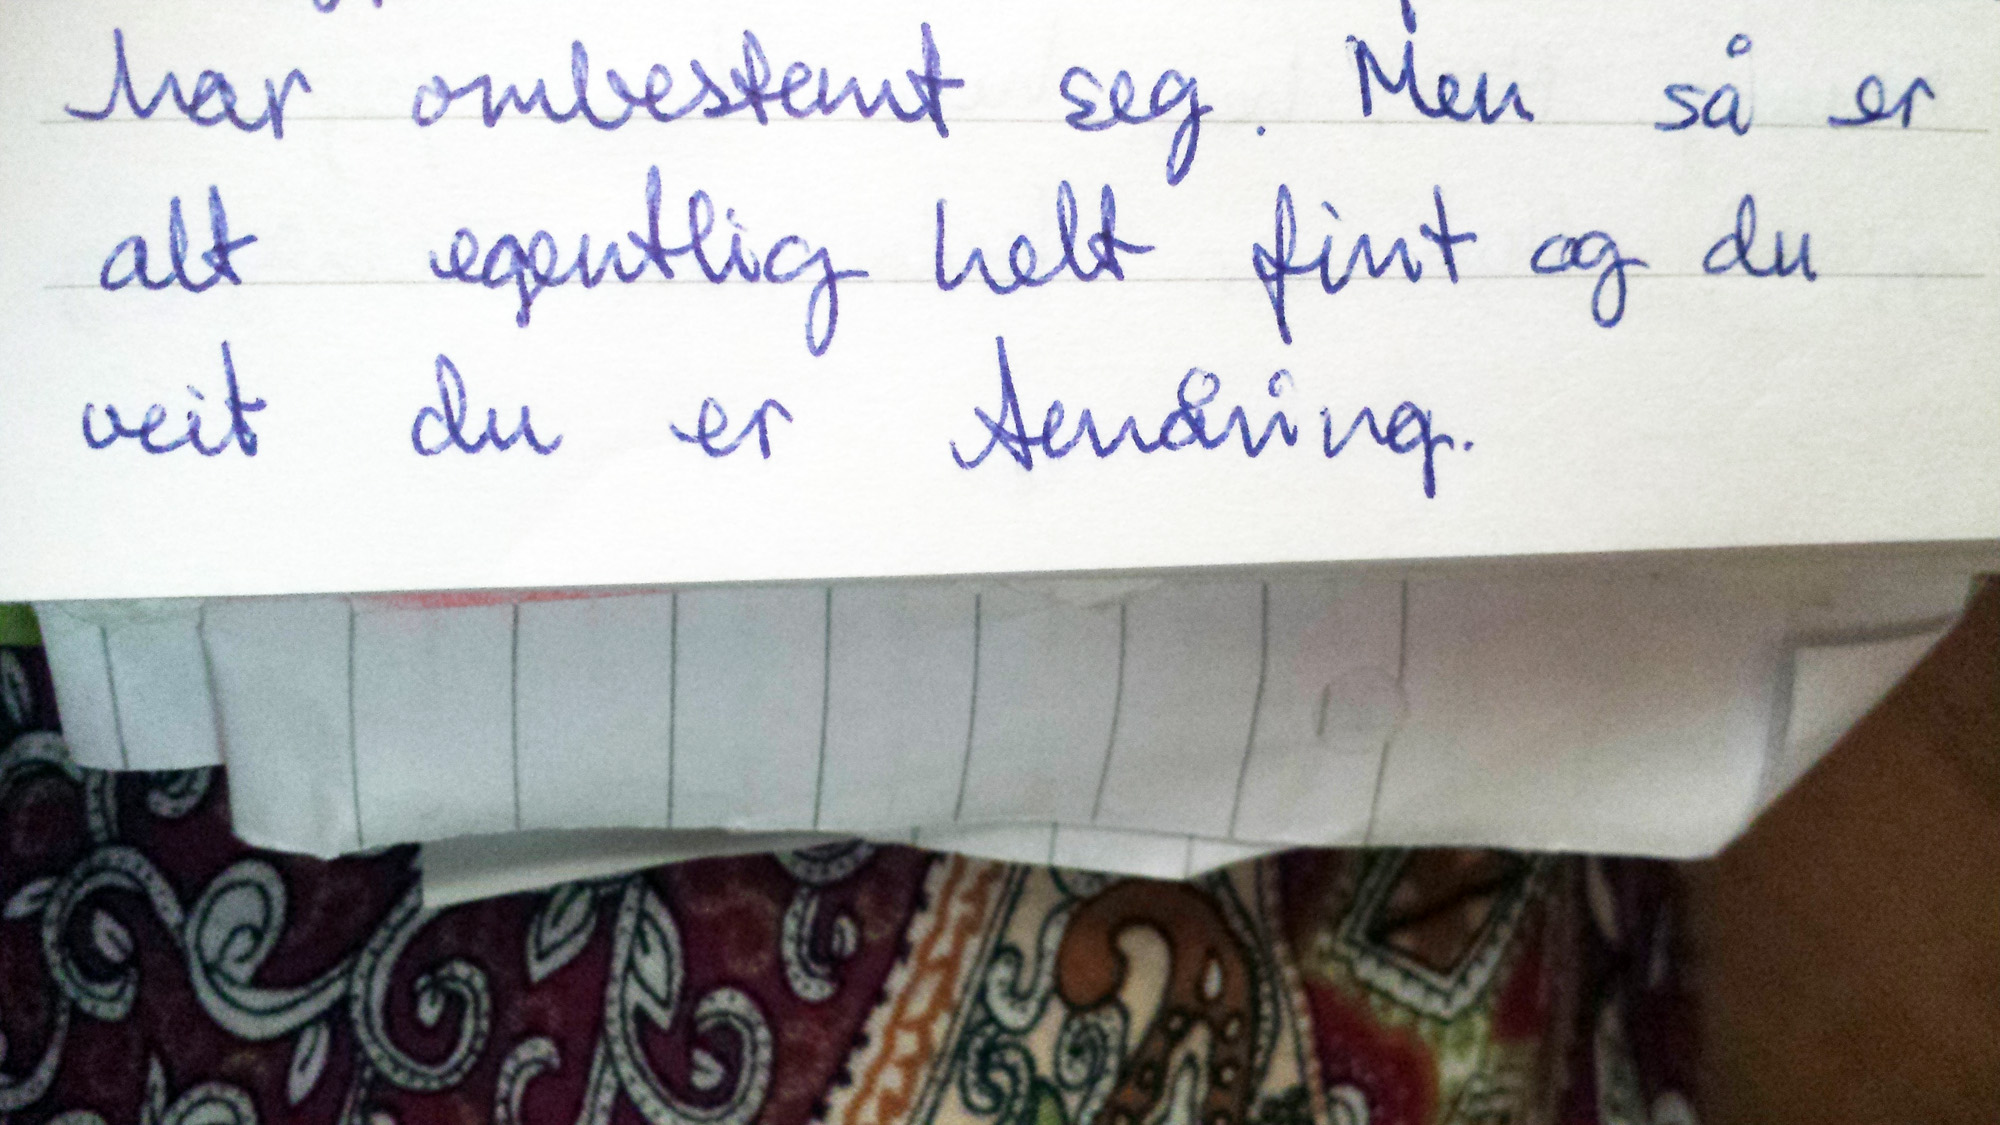 har ombestemt seg. Men så er
alt egentlig helt fint og du
veit du er tenåring.